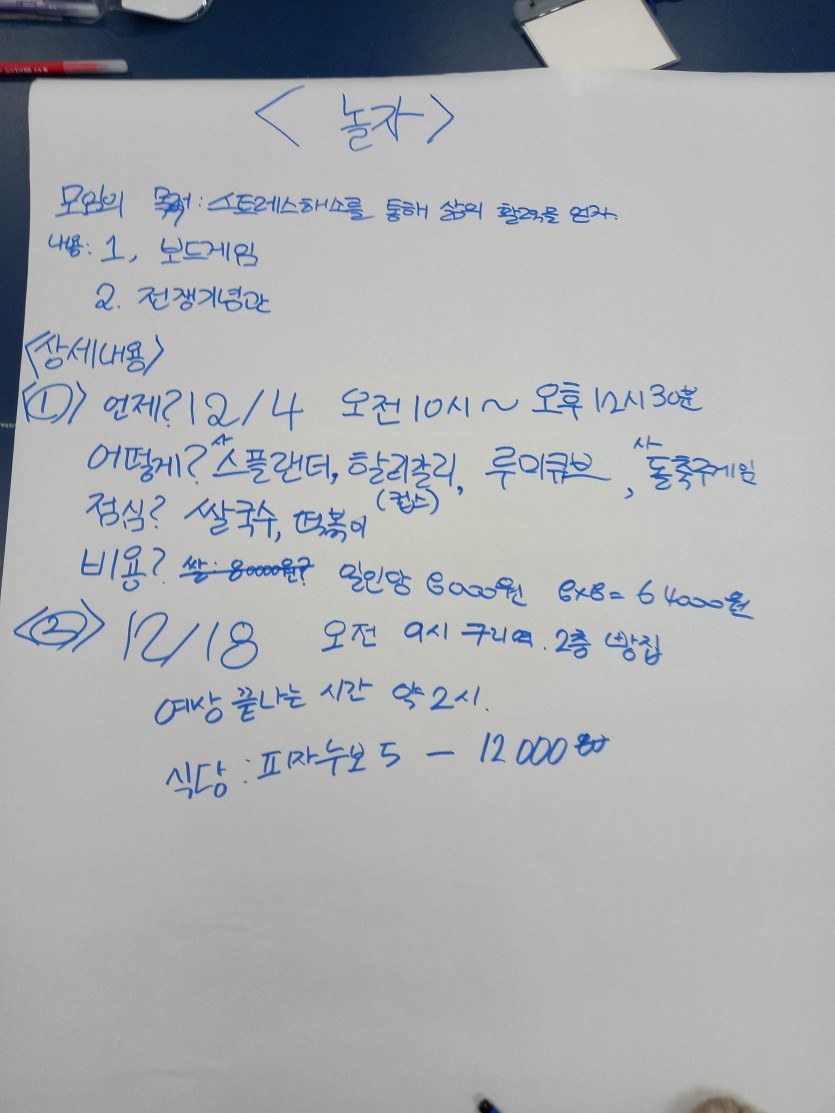 < 놀자 >
모임의 목적 : 스트레스해소를 통해 삶의 활력을 얻자.
내용: 1, 보드게임
2. 전쟁기념관
<상세내용>
<①> 언제? 12/4 오전 10시 ~ 오후 12시 30분
어떻게? 스플랜더, 할리갈리, 루미큐브,
(컵스)
점심? 쌀국수, 떡볶이
비용? 쌀: 8000원? 일인당 8000원 8x8= 64000원
<②> 12/18 오전 9시 구리역. 2층 빵집
예상 끝나는 시간 약 2시.
식당 : 피자누보 5 - 12000원